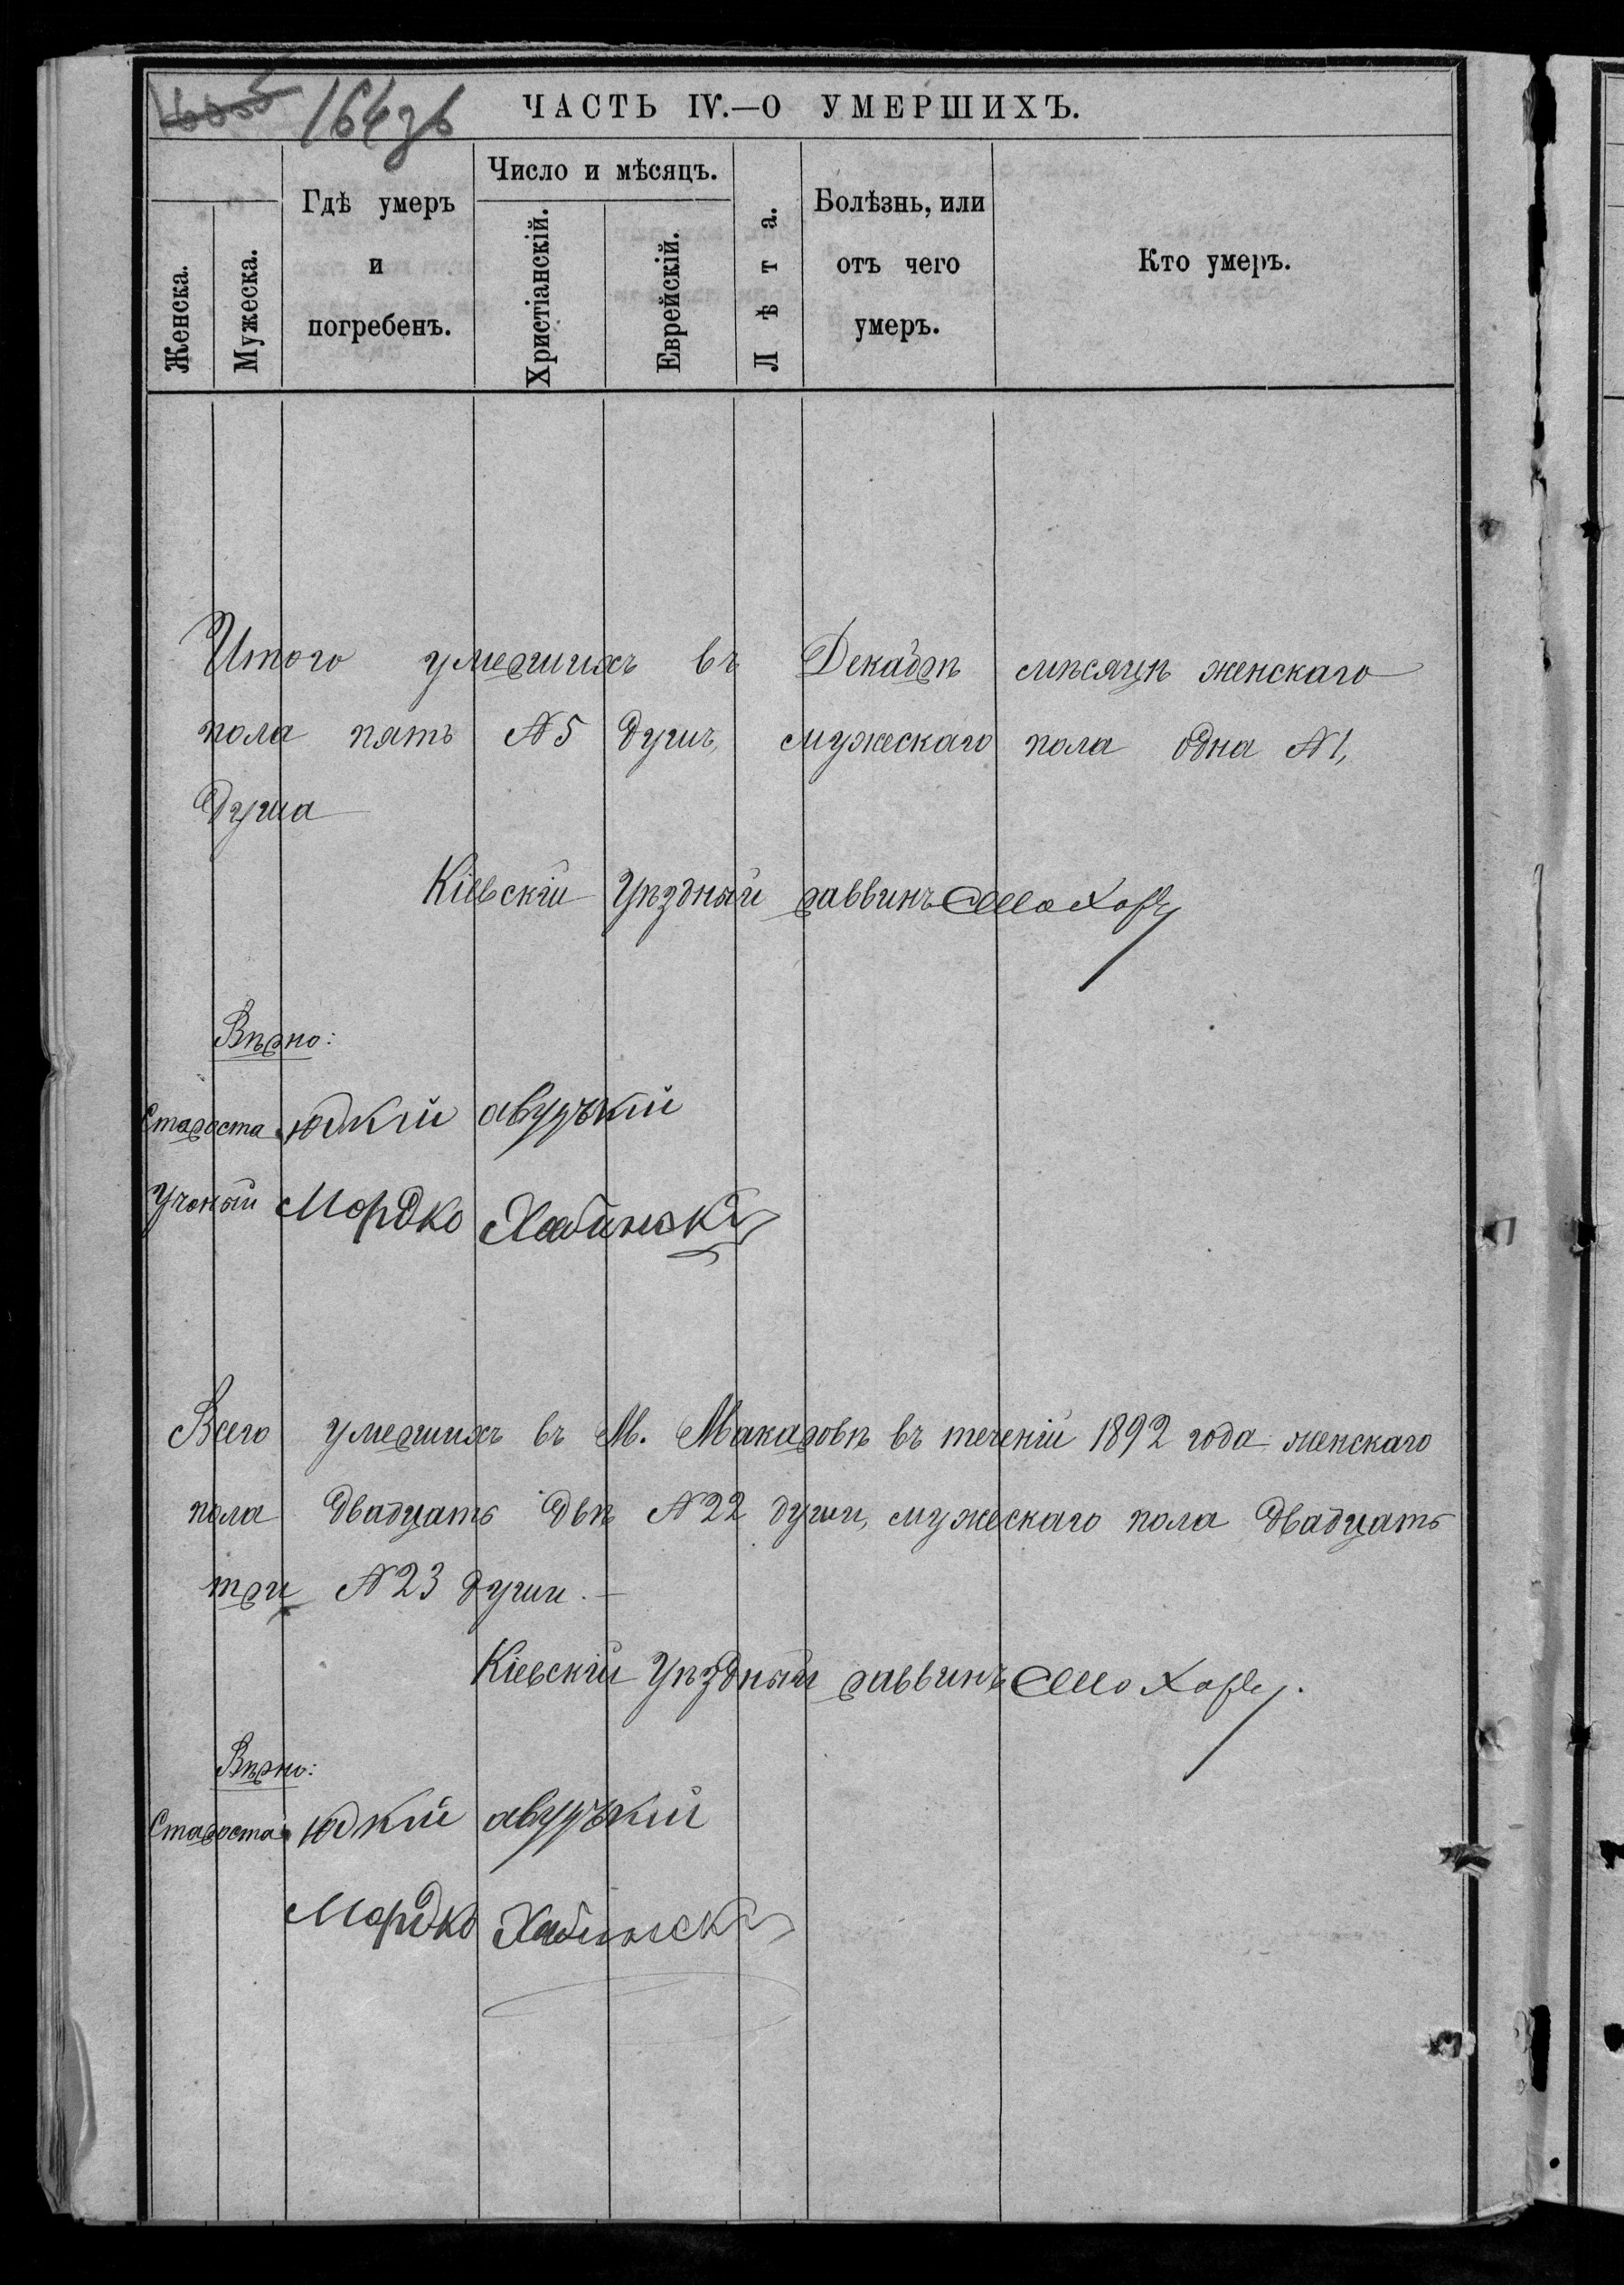 164зв
ЧАСТЬ IV.—О УМЕРШИХЪ.
Женска.
Мужеска.
Гдѣ умеръ
и
погребенъ.
Число и мѣсяцъ.
Христіанскій.
Еврейскій.
Лѣта.
Болѣзнь, или
отъ чего
умеръ.
Кто умеръ.
Итого умершихъ въ Декабрѣ мѣсяцѣ женскаго
пола пять №5 душъ, мужескаго пола одна №1,
душа
Кіевскій Уѣздный раввинъ
Вѣрно:
Староста
Ученый Мордко Хабински
Всего умершихъ въ М. Макаровѣ въ теченіи 1892 года женскаго
пола двадцать двѣ №22 души, мужескаго пола двадцать
три №23 души.—
Кіевскій Уѣздный раввинъ
Вѣрно:
Староста
Мордко Хабински